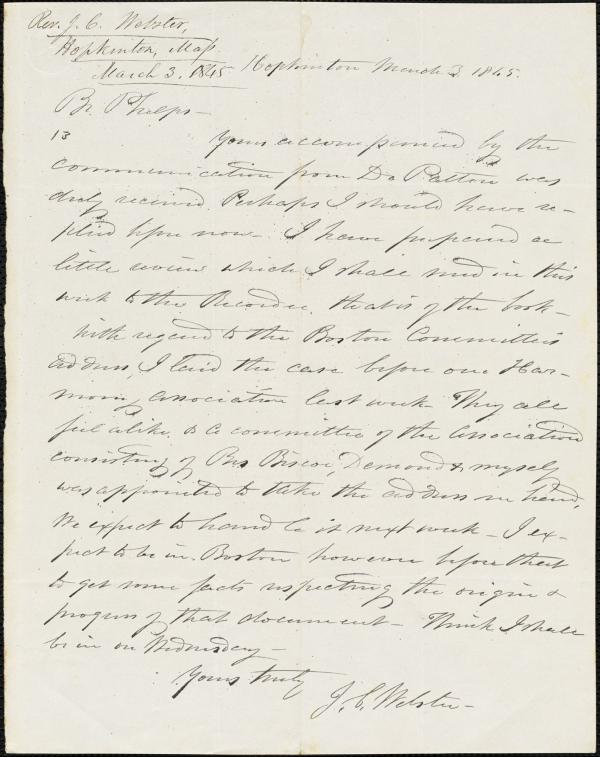 Rev. J. C. Webster,
Hopkinton, Mass.
March 3. 1845
Hopkinton March 3 1845.
Br. Phelps—
13
Yours accompanied by the
communication from Dr Patton was
duly received. Perhaps I should have re-
plied before now— I have prepared a
little review which I shall send in this
week to the Recorder, that is of the book—
With regard to the Boston Committee's
address, I laid the case before our Har-
mony association last week They all
feel alike & a committee of the Association
consisting of Brs Biscoe, Demond & myself
was appointed to take the address in hand,
We expect to handle it next week— I ex-
pect to be in Boston however before that
to get some facts respecting the origin &
progress of that document— Think I shall
be in on Wednesday—
Yours truly
J. C. Webster—